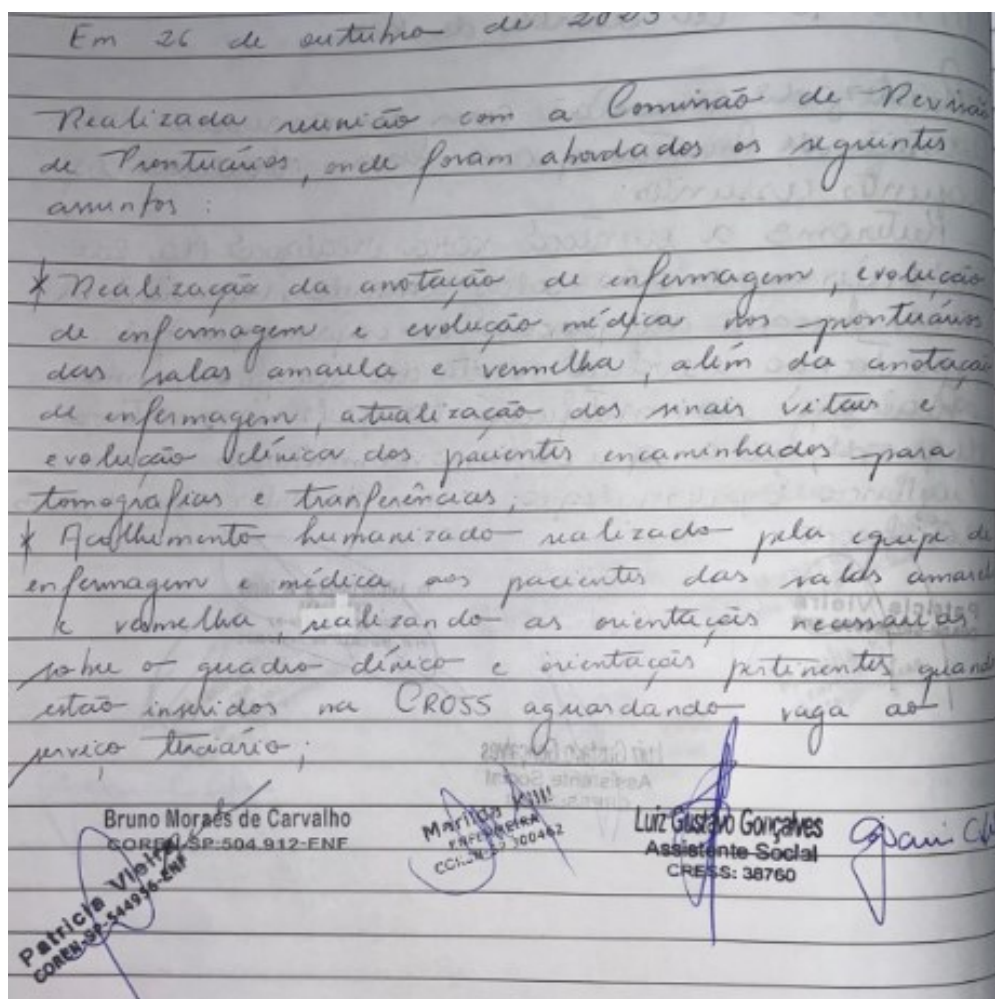 Em 26 de outubro de 2023
Realizada reunião com a Comissão de Revisão
de Prontuários, onde foram abordados os seguintes
assuntos:
* Realização da anotação de enfermagem, evolução
de enfermagem e evolução médica nos prontuários
das salas amarela e vermelha, além da anotação
de enfermagem, atualização dos sinais vitais e
evolução clínica dos pacientes encaminhados para
tomografias e tranferências;
* Acolhimento humanizado realizado pela equipe de
enfermagem e médica aos pacientes das salas amarela
e vermelha, realizando as orientações necessárias
sobre o quadro clínico e orientações pertinentes quando
estão inseridos na CROSS aguardando vaga ao
serviço terciário;
Bruno Moraes de Carvalho
COREN-SP-504.912-ENF
Patricia Vieira
COREN-SP-544956-ENF
Marilda
ENFERMEIRA
Luiz Gustavo Gonçalves
Assistente Social
CRESS: 38760